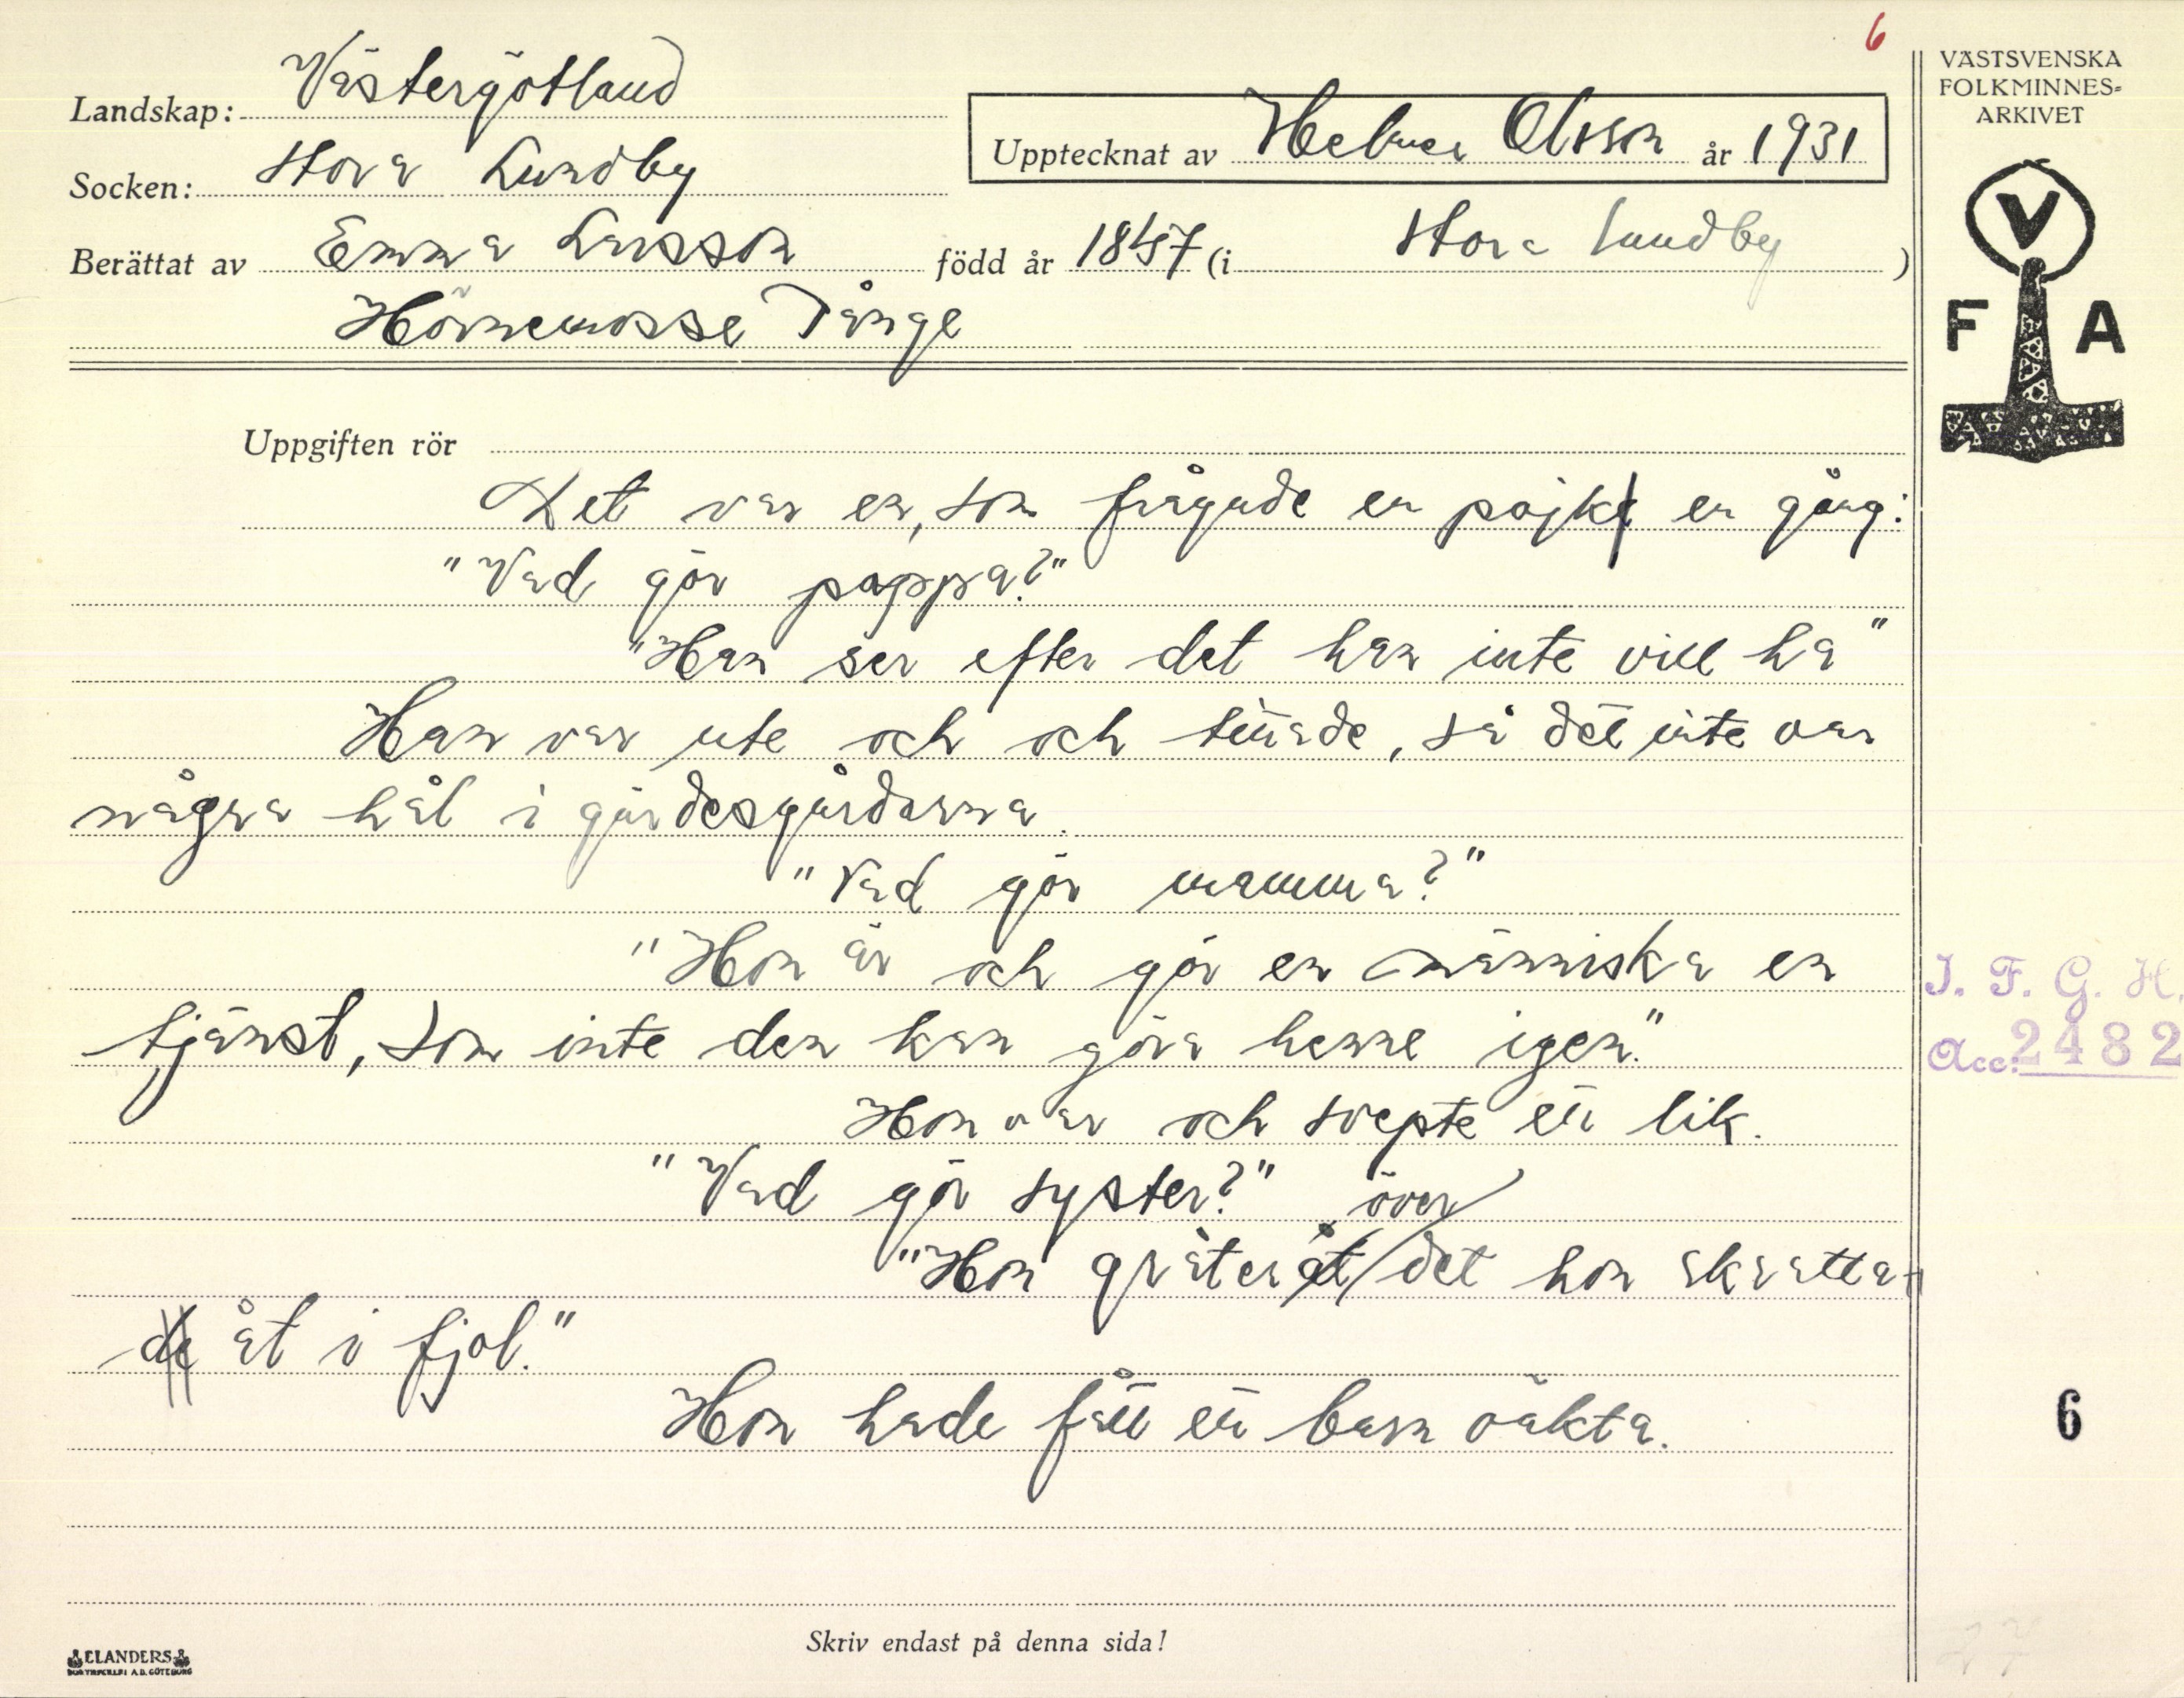 6
VÄSTSVENSKA
FOLKMINNES-
ARKIVET
Landskap: Västergötland
Upptecknat av Helmer Olsson år 1931
Socken: Stora Lundby
Berättat av Emma Larsson född år 1857 (i Stora Lundby )
Hörnemosse Tånge
V
F A
Uppgiften rör
Det var en, som frågade en pojke en gång:
"Vad gör pappa?"
"Han ser efter det han inte vill ha"
Han var ute och och tittade, så det inte var
några hål i gärdesgårdarna.
"Vad gör mamma?"
"Hon är och gör en människa en
tjänst, som inte den kan göra henne igen."
Hon var och svepte ett lik.
"Vad gör syster?" över
"Hon gråter åt det hon skratta-
de åt i fjol."
Hon hade fått ett barn oäkta.
I. F. G. H.
Acc: 2482
6
Skriv endast på denna sida!
ELANDERS
BOKTRYCKERI A.B. GÖTEBORG